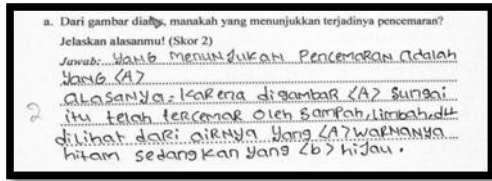 a. Dari gambar diatas, manakah yang menunjukkan terjadinya pencemaran?
Jelaskan alasanmu! (Skor 2)
Jawab: YANG MENUNJUKAN PENCEMARAN adalah
YANG <A>
alasanya = Karena digambar <A> sungai
itu telah tercemar oleh sampah, limbah, dll
2
dilihat dari airnya yang <A> warnanya
hitam sedangkan yang <b> hijau.